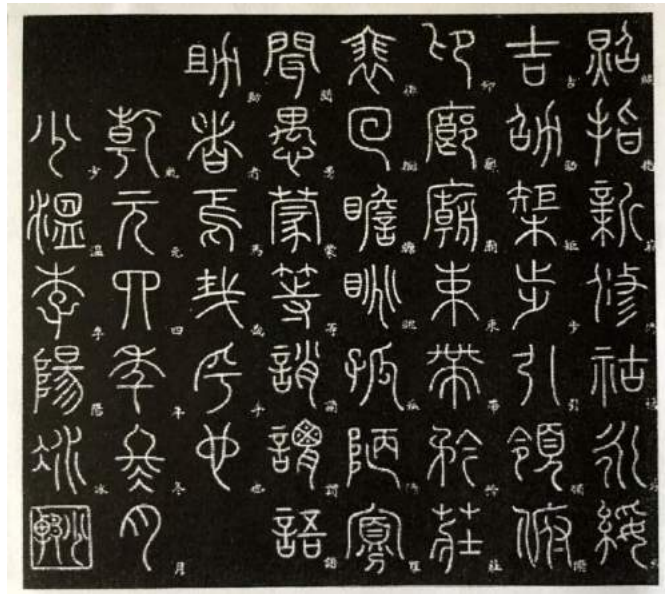 照指薪修祜永綏
吉劭矩步引領俯
仰廊廟束帶矜莊
徘徊瞻眺孤陋寡
聞愚蒙等誚謂語
助者焉哉乎也
乾元四年冬月
少溫李陽冰